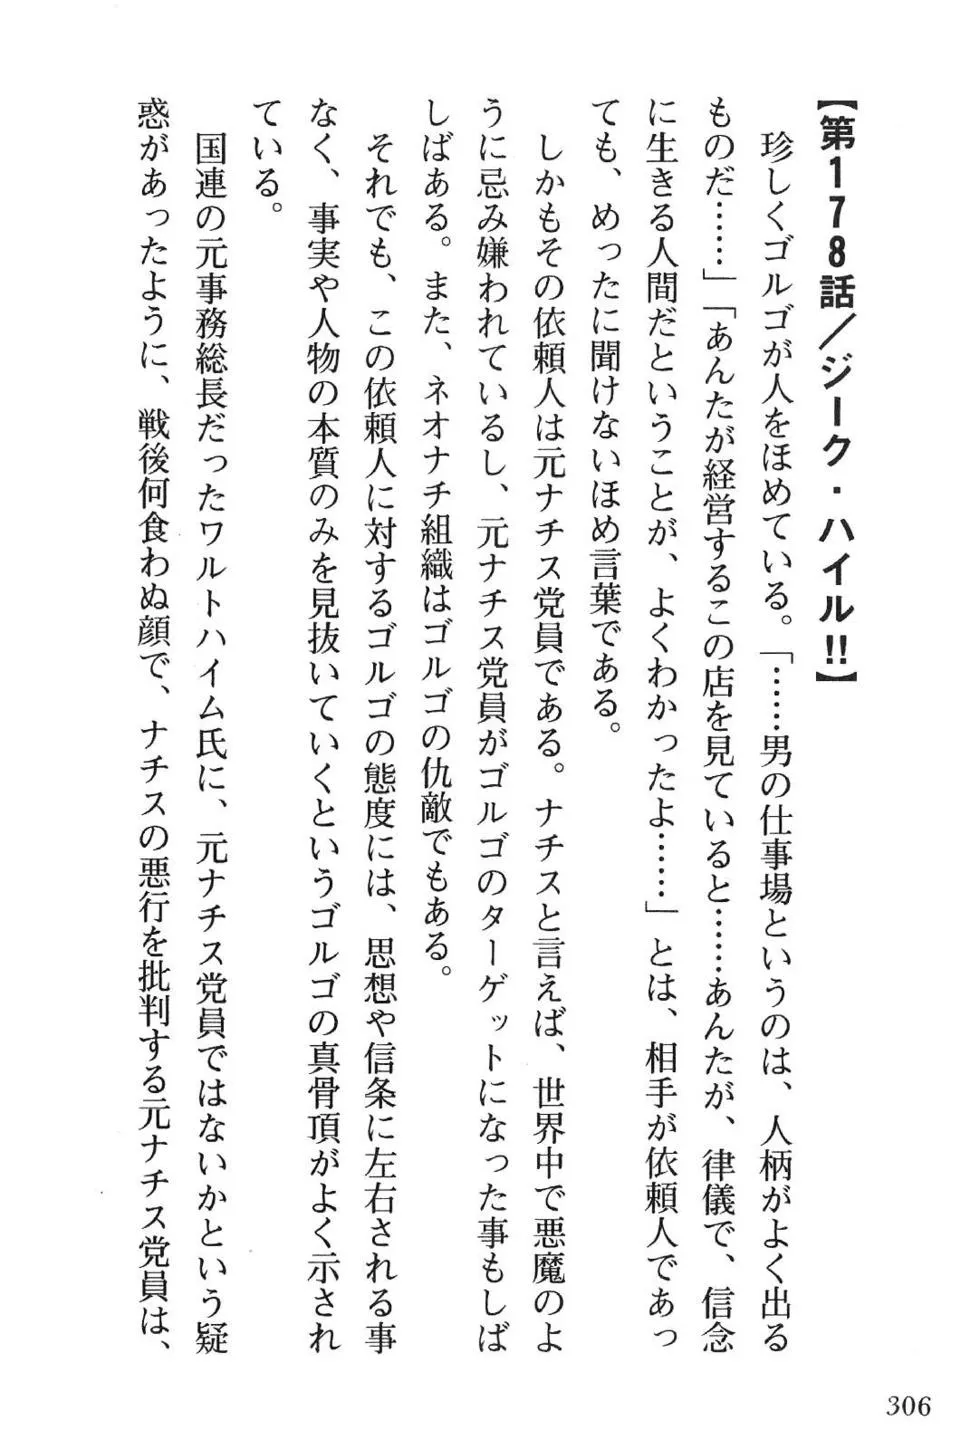 【第178話／ジーク・ハイル!!】
珍しくゴルゴが人をほめている。「……男の仕事場というのは、人柄がよく出る
ものだ……」「あんたが経営するこの店を見ていると……あんたが、律儀で、信念
に生きる人間だということが、よくわかったよ……」とは、相手が依頼人であっ
ても、めったに聞けないほめ言葉である。
しかもその依頼人は元ナチス党員である。ナチスと言えば、世界中で悪魔のよ
うに忌み嫌われているし、元ナチス党員がゴルゴのターゲットになった事もしば
しばある。また、ネオナチ組織はゴルゴの仇敵でもある。
それでも、この依頼人に対するゴルゴの態度には、思想や信条に左右される事
なく、事実や人物の本質のみを見抜いていくというゴルゴの真骨頂がよく示され
ている。
国連の元事務総長だったワルトハイム氏に、元ナチス党員ではないかという疑
惑があったように、戦後何食わぬ顔で、ナチスの悪行を批判する元ナチス党員は、
306